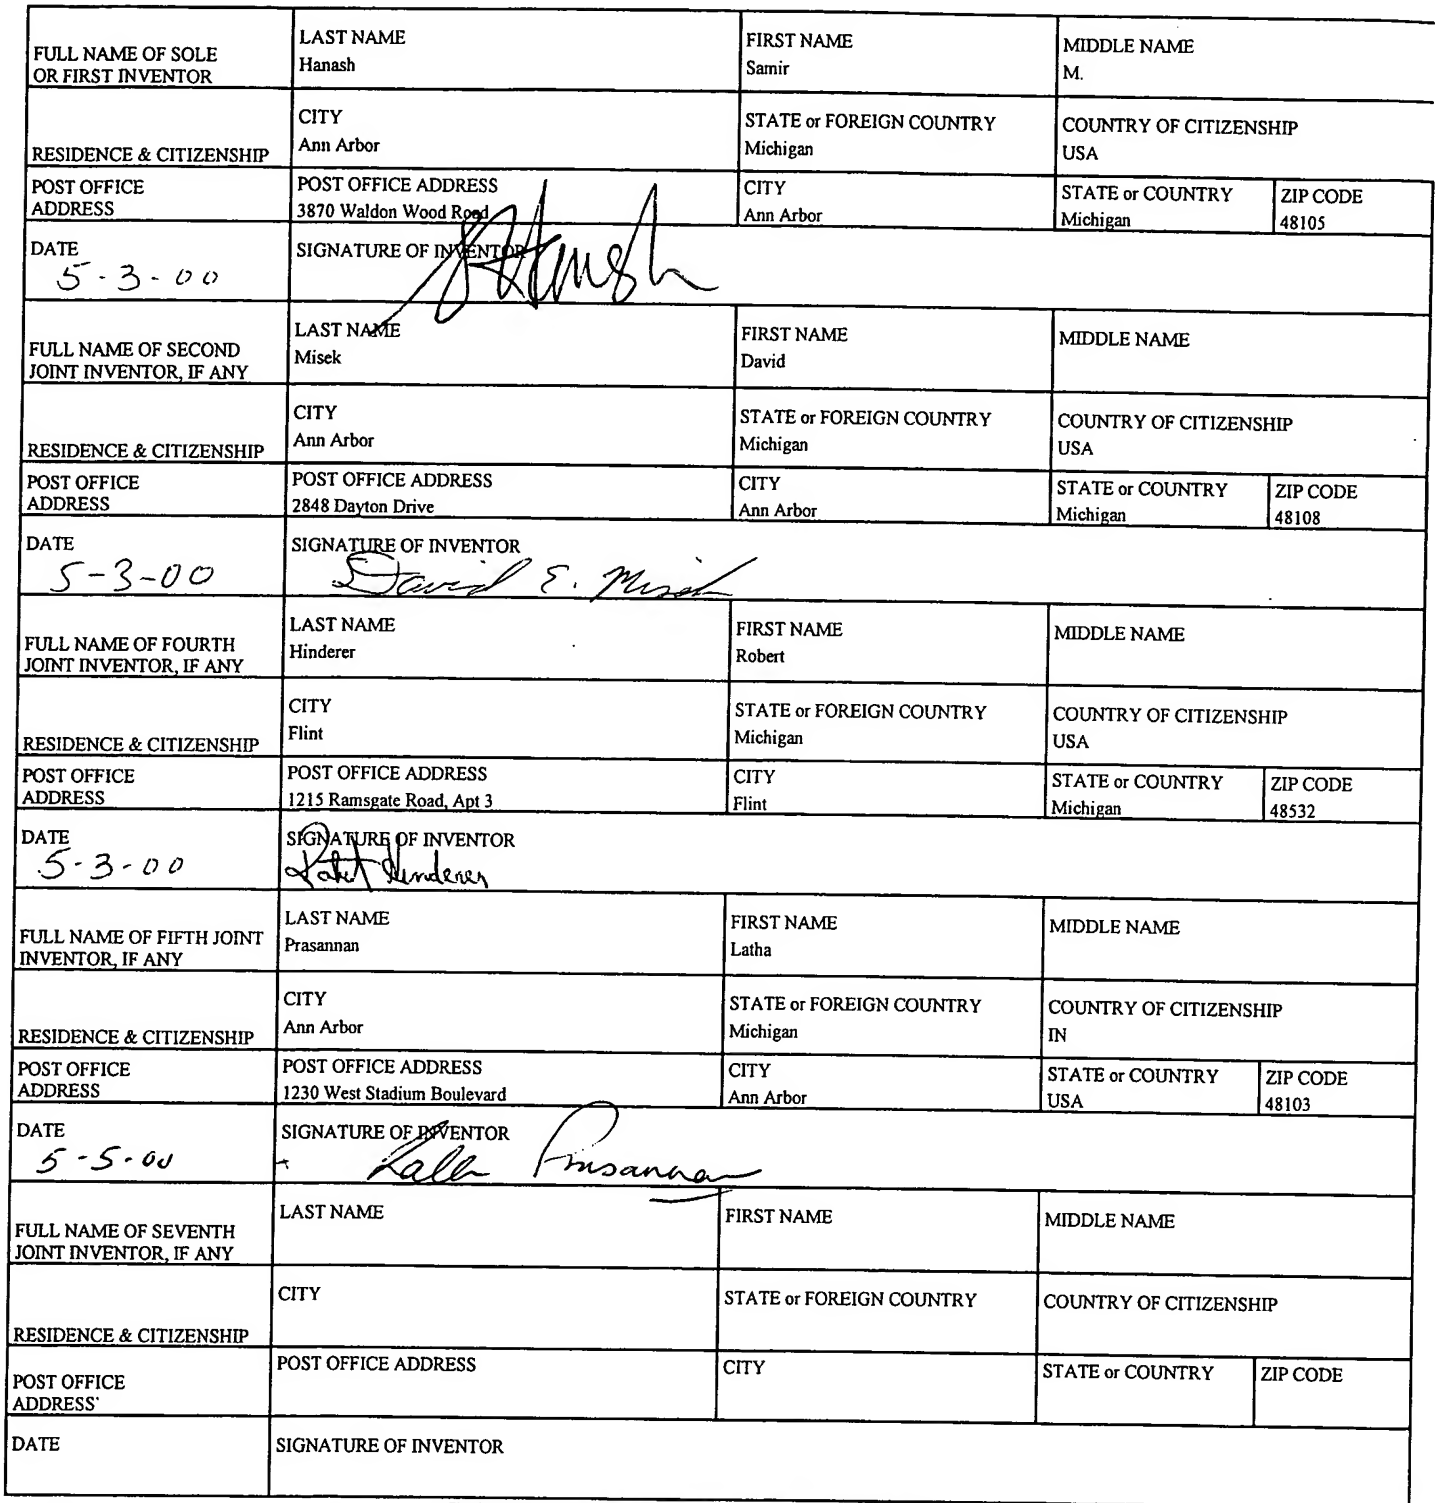 FULL NAME OF SOLE
OR FIRST INVENTOR
LAST NAME
Hanash
FIRST NAME
Samir
MIDDLE NAME
M.
RESIDENCE & CITIZENSHIP
CITY
Ann Arbor
STATE or FOREIGN COUNTRY
Michigan
COUNTRY OF CITIZENSHIP
USA
POST OFFICE
ADDRESS
POST OFFICE ADDRESS
3870 Waldon Wood Road
CITY
Ann Arbor
STATE or COUNTRY
Michigan
ZIP CODE
48105
DATE
5-3-00
SIGNATURE OF INVENTOR
SHanash
FULL NAME OF SECOND
JOINT INVENTOR, IF ANY
LAST NAME
Misek
FIRST NAME
David
MIDDLE NAME
RESIDENCE & CITIZENSHIP
CITY
Ann Arbor
STATE or FOREIGN COUNTRY
Michigan
COUNTRY OF CITIZENSHIP
USA
POST OFFICE
ADDRESS
POST OFFICE ADDRESS
2848 Dayton Drive
CITY
Ann Arbor
STATE or COUNTRY
Michigan
ZIP CODE
48108
DATE
5-3-00
SIGNATURE OF INVENTOR
David E. Misek
FULL NAME OF FOURTH
JOINT INVENTOR, IF ANY
LAST NAME
Hinderer
FIRST NAME
Robert
MIDDLE NAME
RESIDENCE & CITIZENSHIP
CITY
Flint
STATE or FOREIGN COUNTRY
Michigan
COUNTRY OF CITIZENSHIP
USA
POST OFFICE
ADDRESS
POST OFFICE ADDRESS
1215 Ramsgate Road, Apt 3
CITY
Flint
STATE or COUNTRY
Michigan
ZIP CODE
48532
DATE
5-3-00
SIGNATURE OF INVENTOR
Robert Hinderer
FULL NAME OF FIFTH JOINT
INVENTOR, IF ANY
LAST NAME
Prasannan
FIRST NAME
Latha
MIDDLE NAME
RESIDENCE & CITIZENSHIP
CITY
Ann Arbor
STATE or FOREIGN COUNTRY
Michigan
COUNTRY OF CITIZENSHIP
IN
POST OFFICE
ADDRESS
POST OFFICE ADDRESS
1230 West Stadium Boulevard
CITY
Ann Arbor
STATE or COUNTRY
USA
ZIP CODE
48103
DATE
5-5-00
SIGNATURE OF INVENTOR
Latha Prasannan
FULL NAME OF SEVENTH
JOINT INVENTOR, IF ANY
LAST NAME
FIRST NAME
MIDDLE NAME
RESIDENCE & CITIZENSHIP
CITY
STATE or FOREIGN COUNTRY
COUNTRY OF CITIZENSHIP
POST OFFICE
ADDRESS
POST OFFICE ADDRESS
CITY
STATE or COUNTRY
ZIP CODE
DATE
SIGNATURE OF INVENTOR